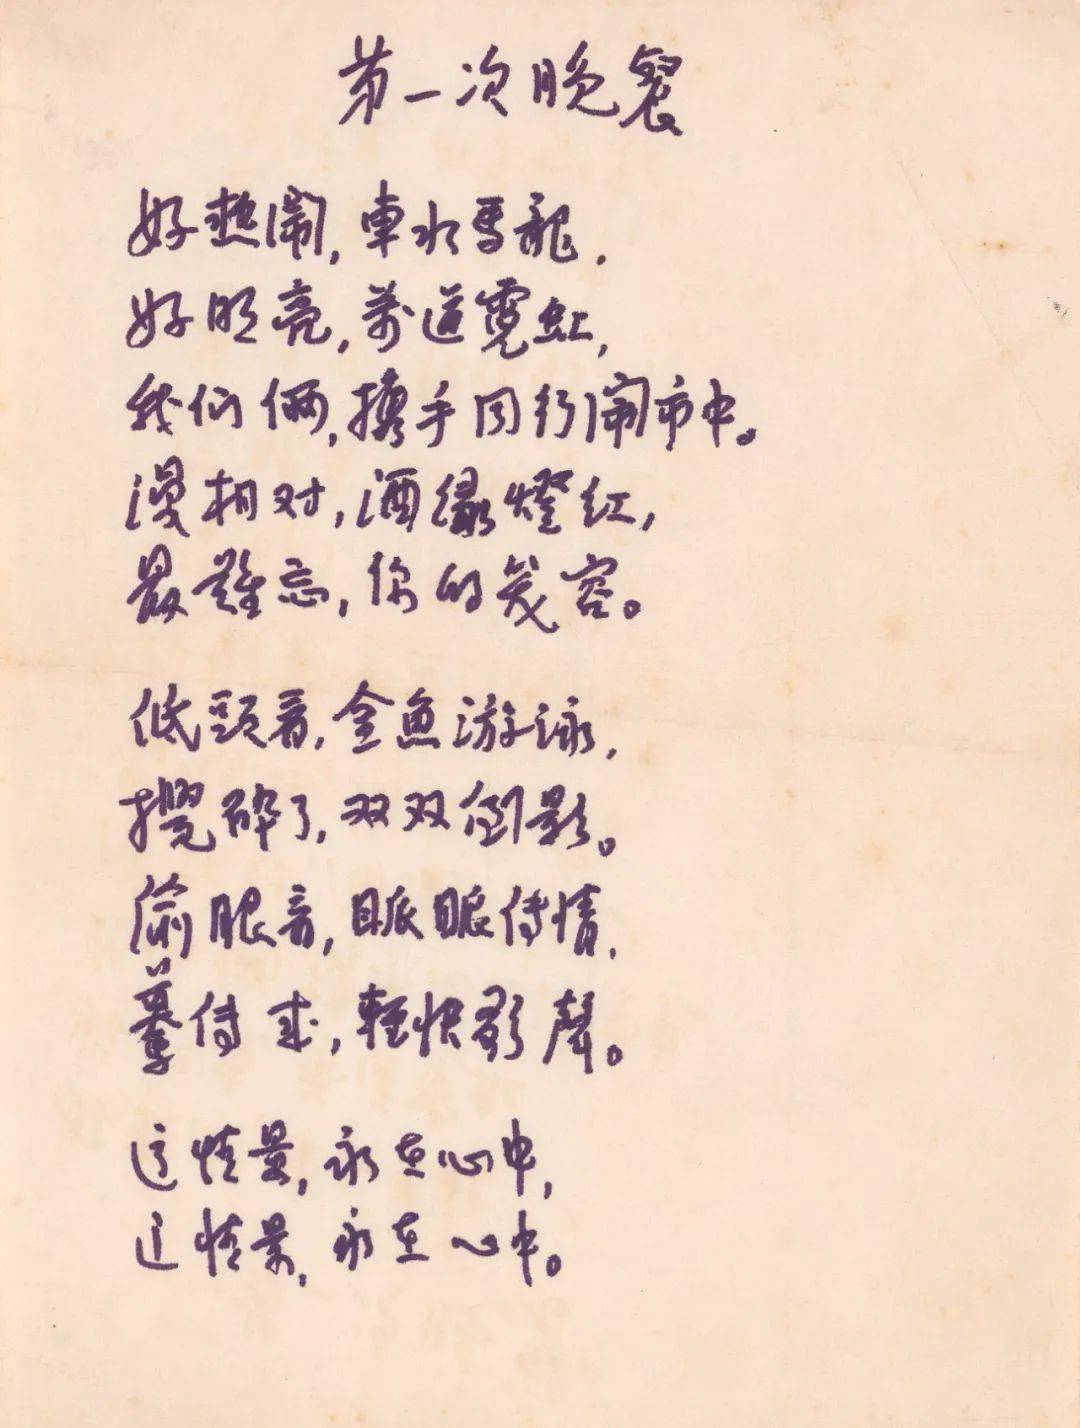 第一次晚餐
好热闹,車水馬龍,
好明亮,萬道霓虹,
我们俩,携手同行闹市中。
漫相对,酒绿燈红,
最難忘,你的笑容。
低頭看,金魚游泳,
搅碎了,双双倒影。
偷眼看,眽眽傳情,
蓦傳来,輕快歌聲。
这情景,永在心中,
这情景,永在心中。